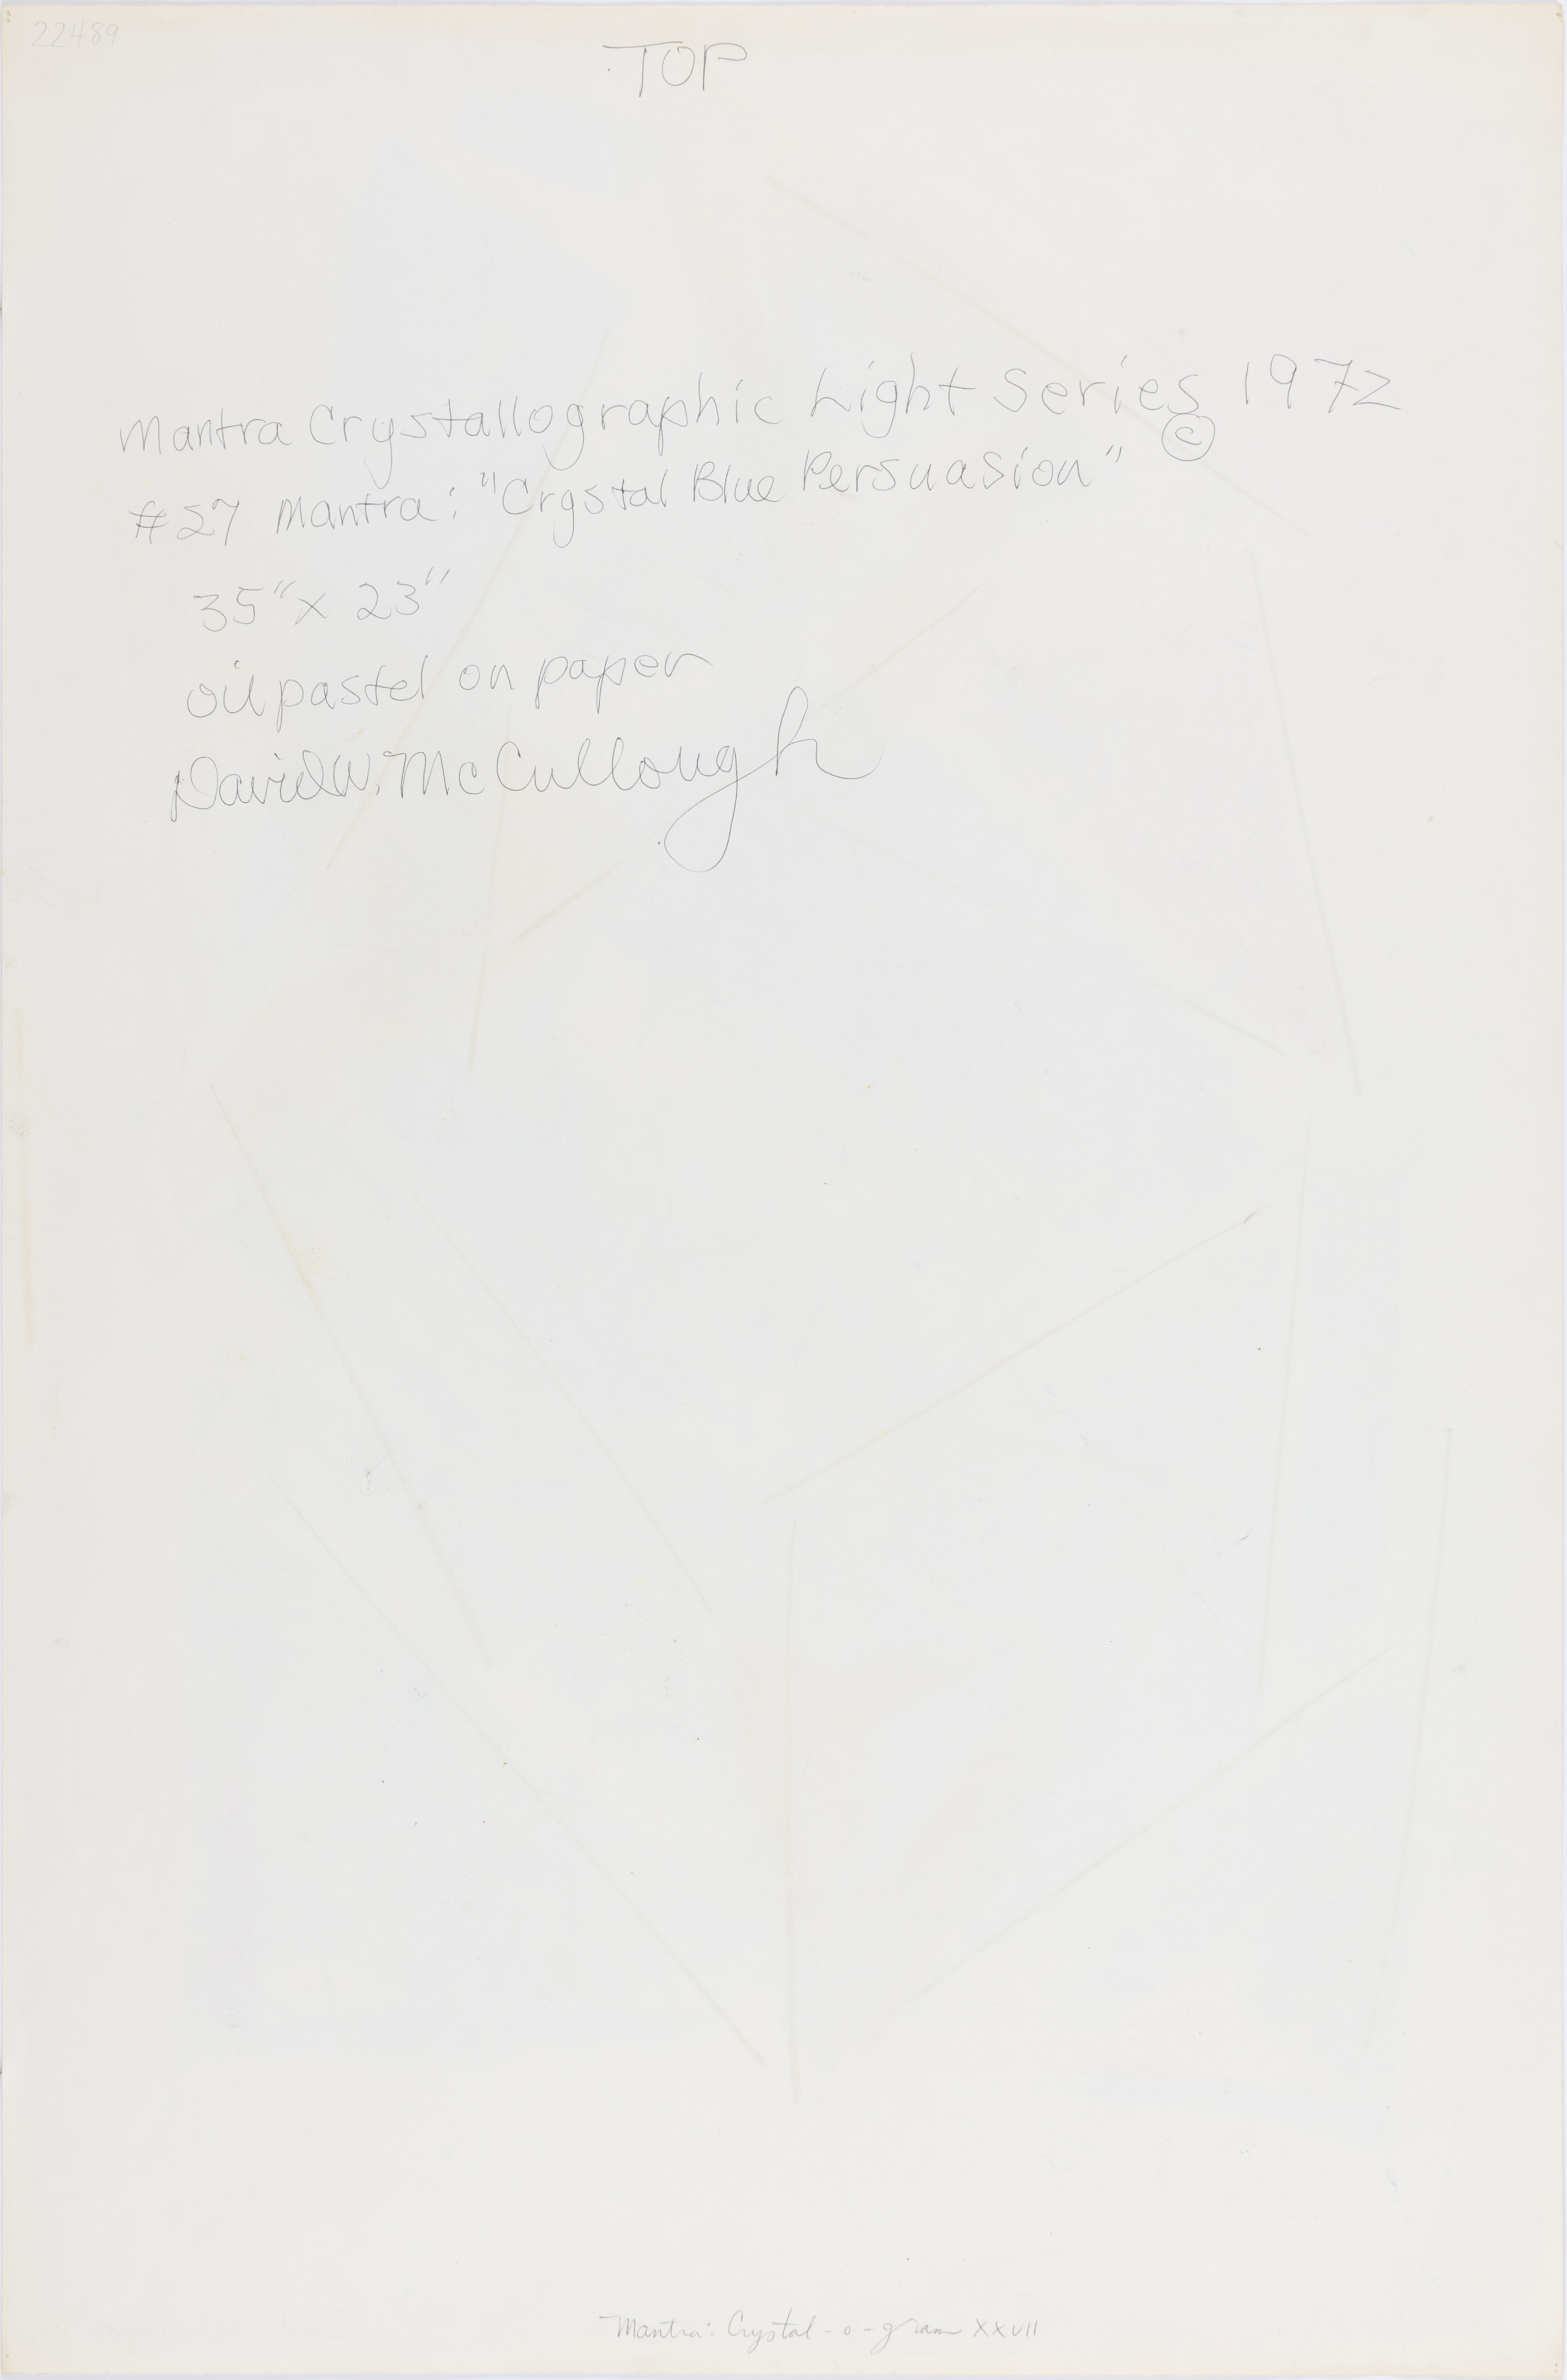 22489
TOP
Mantra Crystallographic Light Series 1972
©
#27 Mantra: "Crystal Blue Persuasion"
35" x 23"
oil pastel on paper
David W. McCullough
Mantra: Crystal-o-gram XXVII